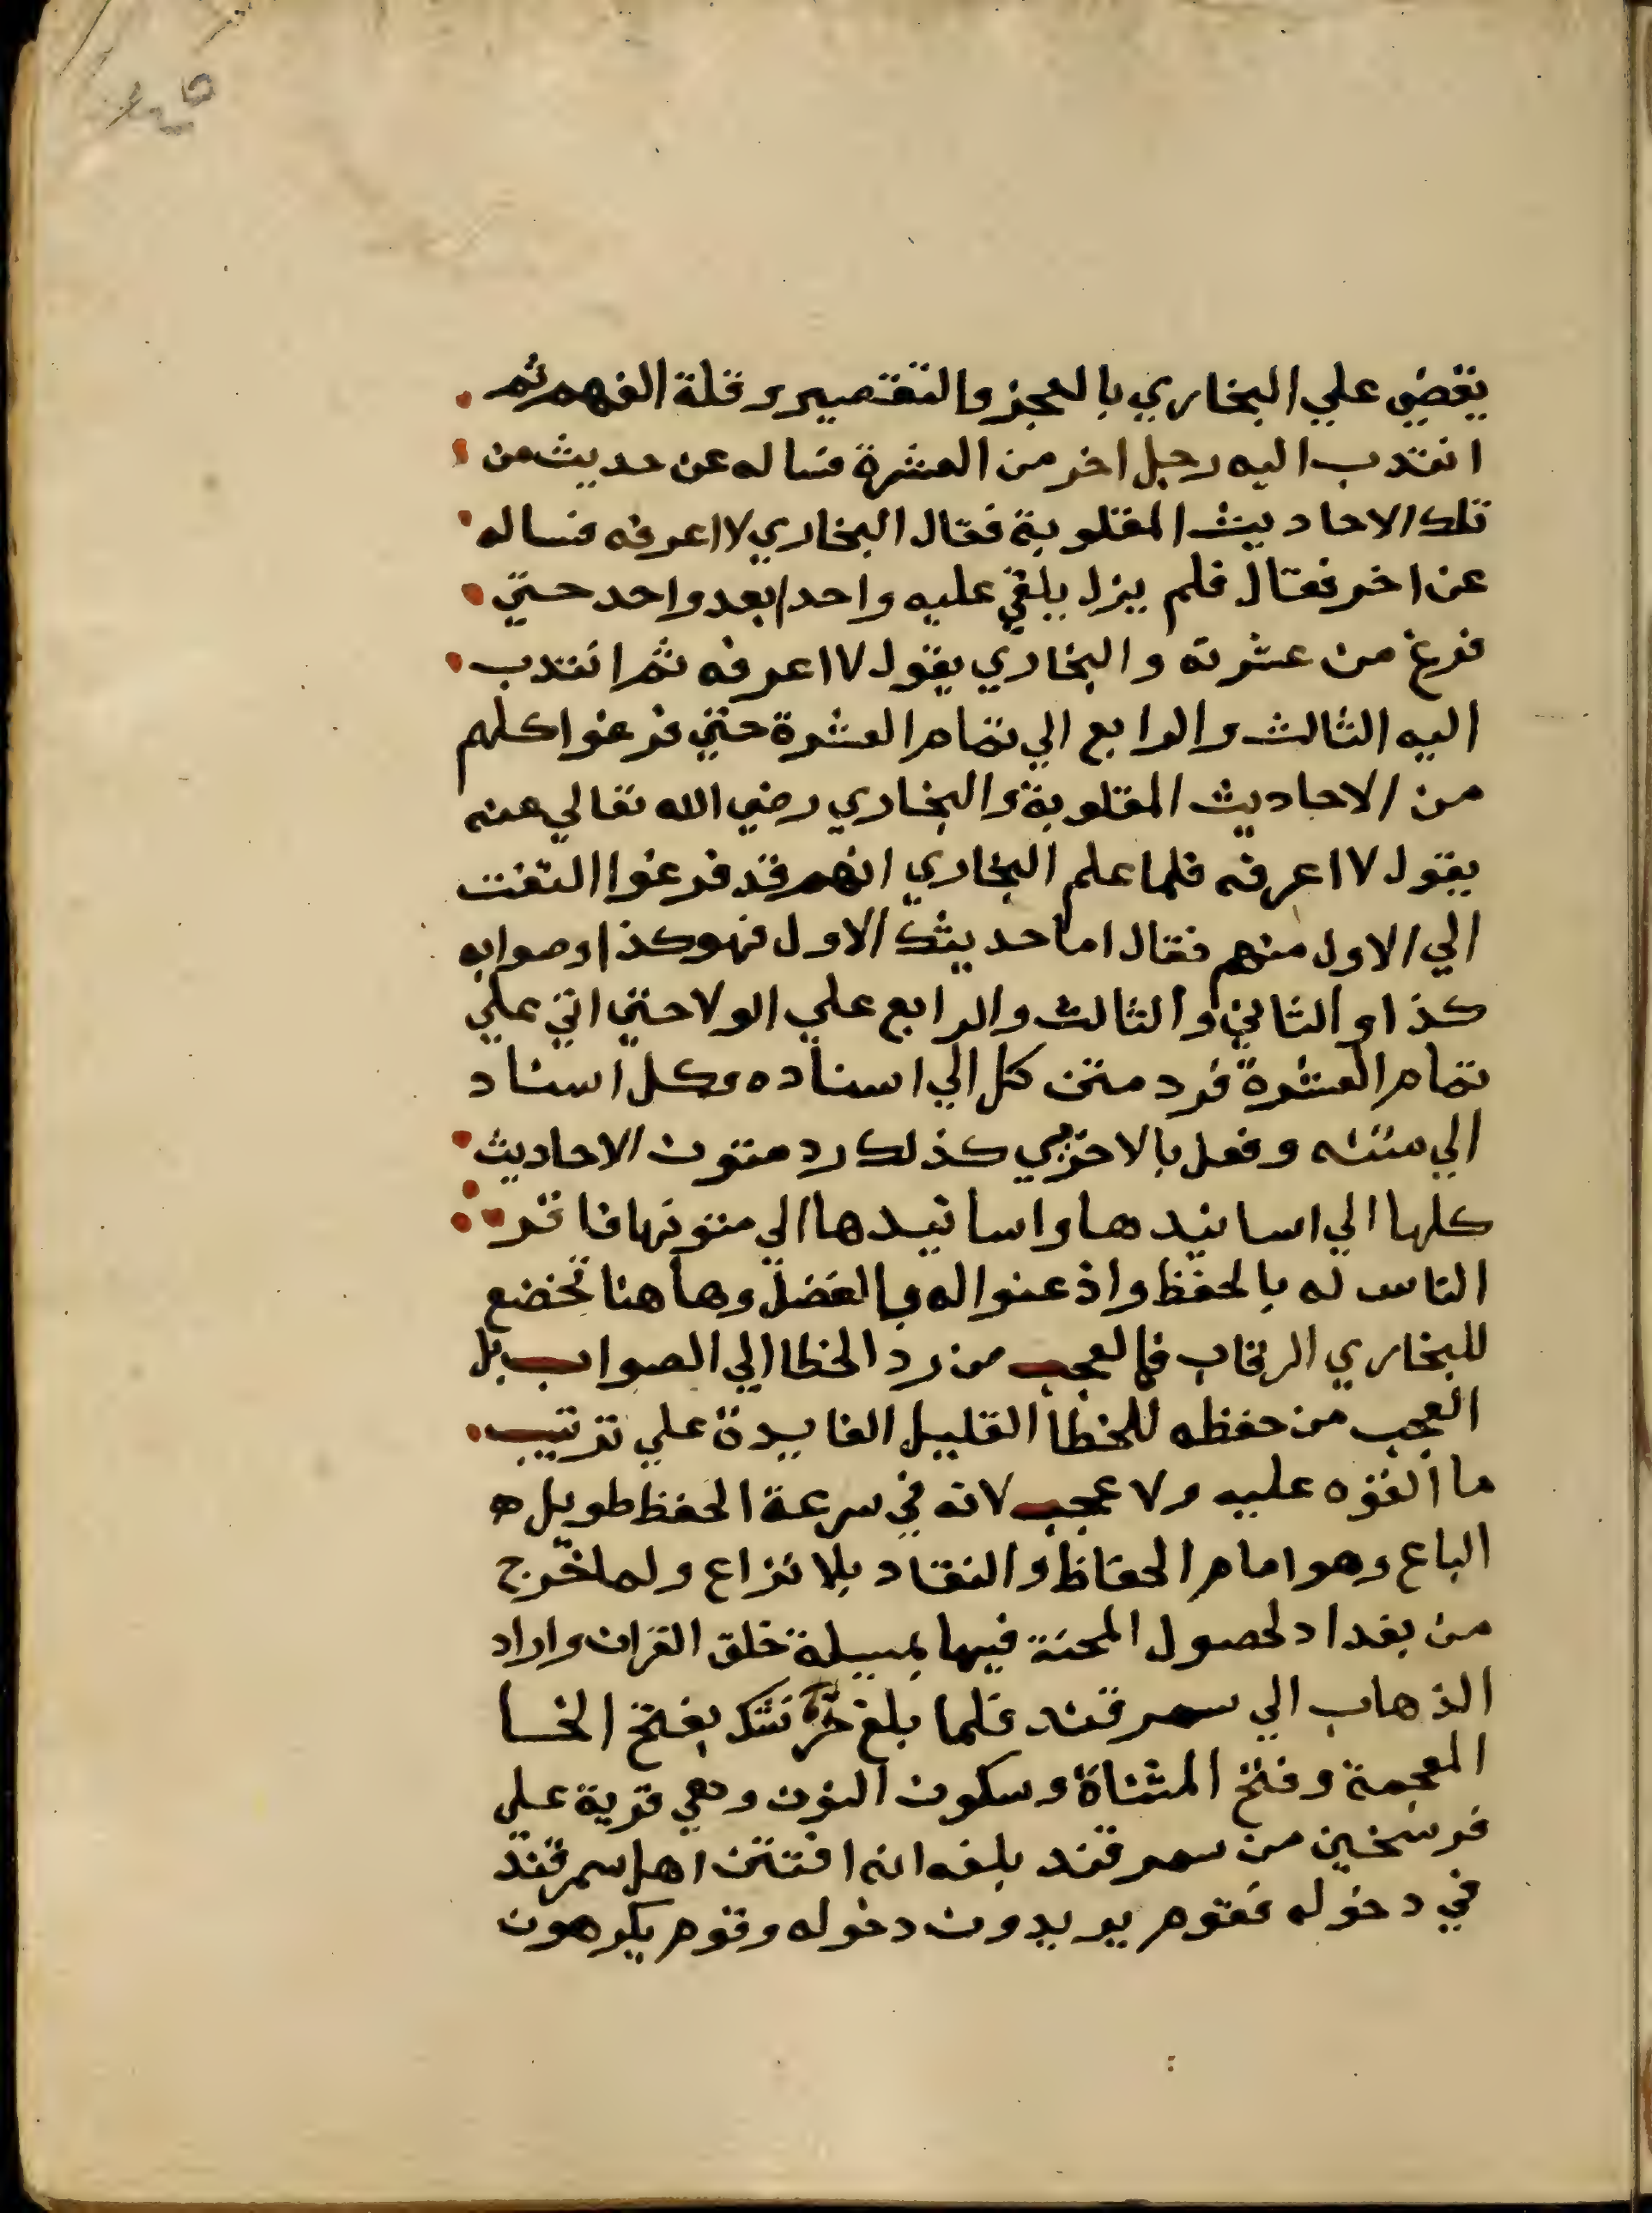 يقضي علي البخاري بالعجز والتقصير وقلة الفهم ثم
انتدب اليه رجل اخر من العشرة فساله عن حديث من
تلك الاحاديث المقلوبة فقال البخاري لا اعرفه فساله
عن اخر فقال فلم يزل يلقي عليه واحدا بعد واحد حتي
فرغ من عشرته والبخاري يقول لا اعرفه ثم انتدب
اليه الثالث والرابع الي تمام العشرة حتي فرغوا كلهم
من الاحاديث المقلوبة والبخاري رضي الله تعالي عنه
يقول لا اعرفه فلما علم البخاري انهم قد فرغوا التفت
الي الاول منهم فقال اما حديثك الاول فهو كذا وصوابه
كذا والثاني والثالث والرابع علي الولا حتي اتي علي
تمام العشرة فرد متن كل الي اسناده وكل اسناد
الي متنه وفعل بالاخري كذلك رد متون الاحاديث
كلها الي اسانيدها واسانيدها الي متونها فاقر
الناس له بالحفظ واذعنوا له بالفضل وها هنا تخضع
للبخاري الرقاب فما العجب من رد الخطا الي الصواب بل
العجب من حفظه للخطأ القليل الفايدة علي ترتيب
ما القوه عليه ولا عجب لانه في سرعة الحفظ طويل
الباع وهو امام الحفاظ والنقاد بلا نزاع ولما خرج
من بغداد لحصول المحنة فيها بمسيلة خلق القران واراد
الذهاب الي سمرقند فلما بلغ خرتنك بفتح الخا
المعجمة وفتح المثناة وسكون النون وهي قرية علي
فرسخين من سمرقند بلغه انه افتتن اهل سمرقند
في دخوله فقوم يريدون دخوله وقوم يكرهون